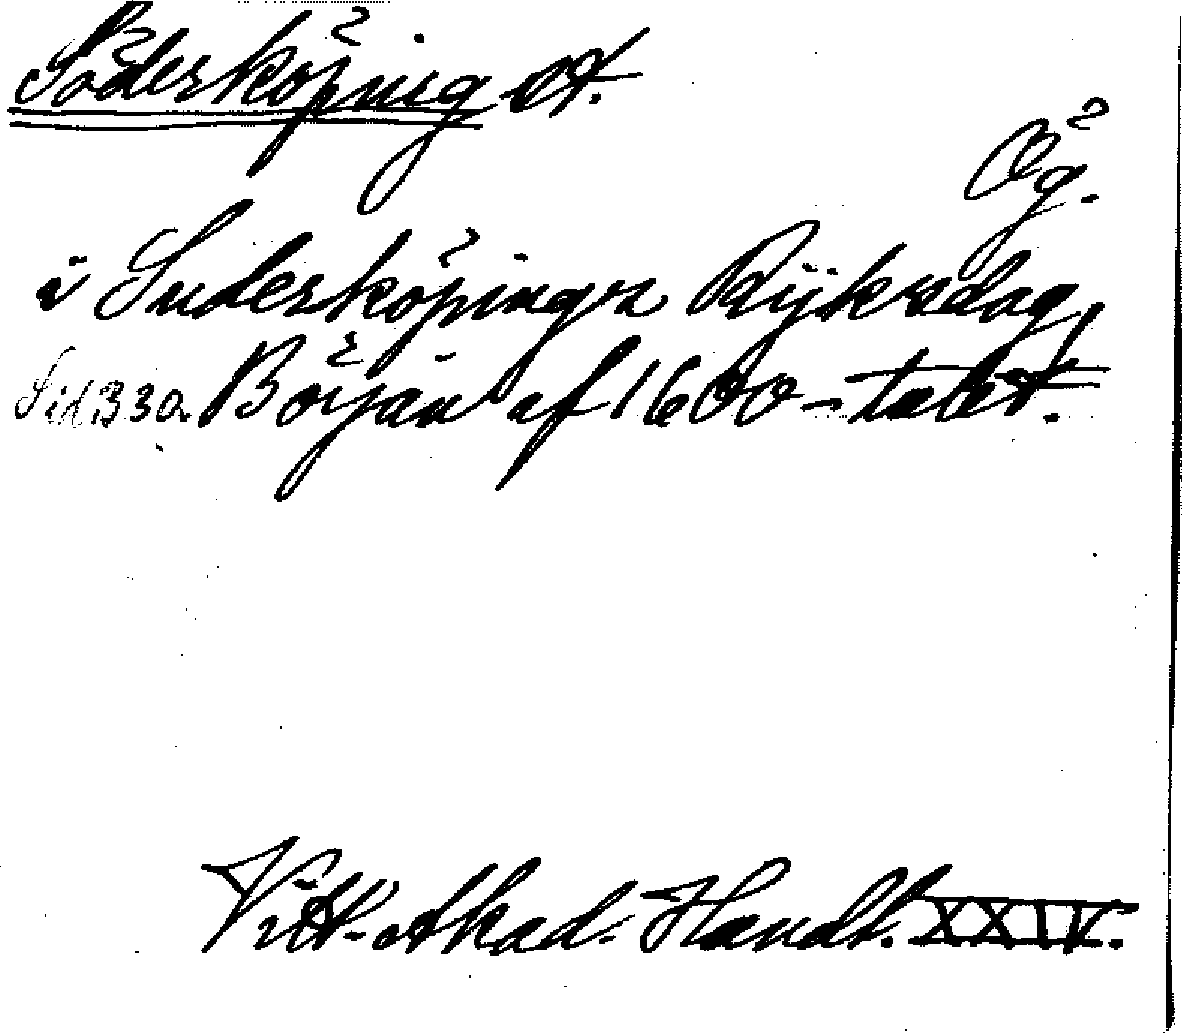 Söderköping st.
Ög.
i Suderköpings Rijksdag,
Sid 330. Börjän af 1600-talet.
Vitt. Akad. Handl. XXIV.